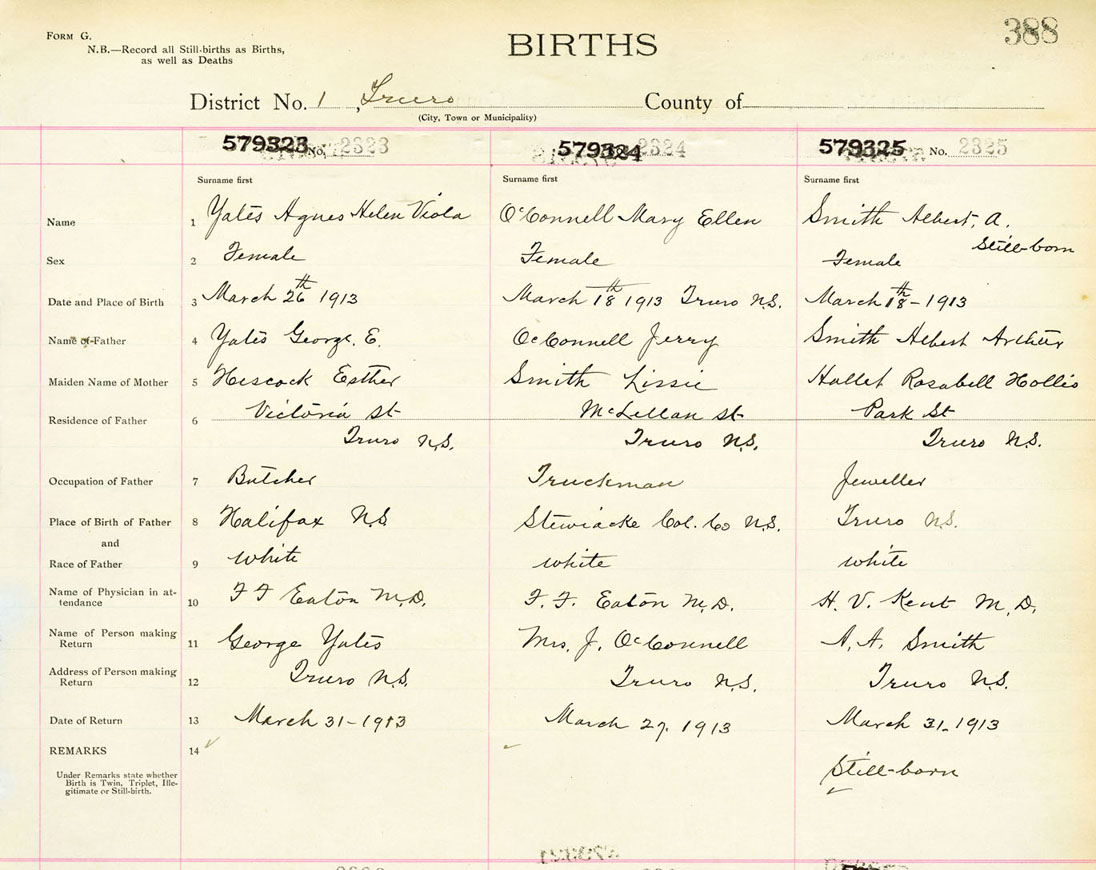 FORM G.
N.B.—Record all Still-births as Births,
as well as Deaths
BIRTHS
388
District No. 1, Truro County of
(City, Town or Municipality)
579323 No. 2323 579324 2324 579325 No. 2325
Surname first Surname first Surname first
Name 1 Yates Agnes Helen Viola O'Connell Mary Ellen Smith Albert, A.
Still-born
Sex 2 Female Female Female
Date and Place of Birth 3 March 26th 1913 March 18th 1913 Truro N.S. March 18th - 1913
Name of Father 4 Yates George. E. O'Connell Jerry Smith Albert Arthur
Maiden Name of Mother 5 Hiscock Esther Smith Lizzie Hallet Rosabell Hollis
Residence of Father 6 Victoria St McLellan St Park St
Truro N.S. Truro N.S. Truro N.S.
Occupation of Father 7 Butcher Truckman Jeweller
Place of Birth of Father 8 Halifax N.S Stewiacke Col. Co N.S. Truro N.S.
and
Race of Father 9 white white white
Name of Physician in at-
tendance 10 F F Eaton M.D. F. F. Eaton M.D. H. V. Kent M.D.
Name of Person making
Return 11 George Yates Mrs. J. O'Connell A. A. Smith
Address of Person making
Return 12 Truro N.S. Truro N.S. Truro N.S.
Date of Return 13 March 31-1913 March 27, 1913 March 31. 1913
REMARKS 14
Still-born
Under Remarks state whether
Birth is Twin, Triplet, Ille-
gitimate or Still-birth.